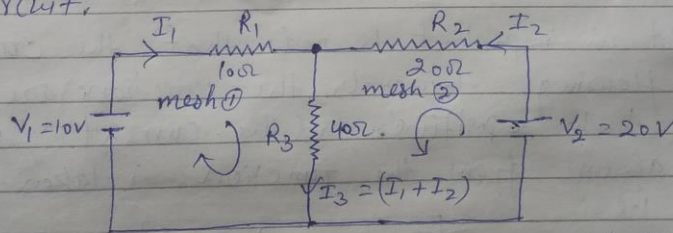 rcuit.
I₁ R₁ R₂ I₂
10Ω 20Ω
mesh ① mesh ②
V₁ = 10V R₃ 40Ω. V₂ = 20V
I₃ = (I₁ + I₂)